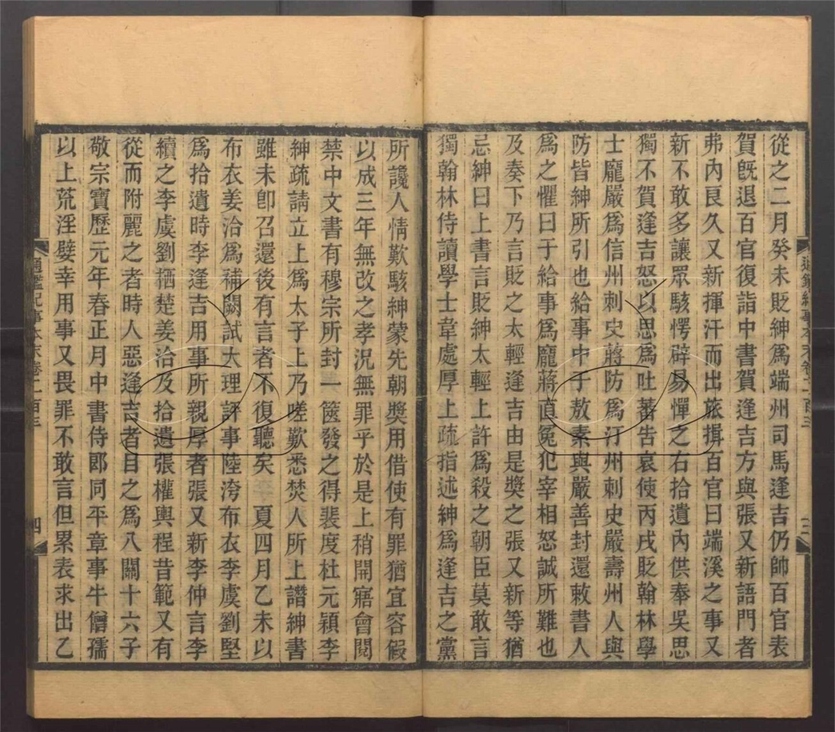 從之二月癸未貶紳爲端州司馬逢吉仍帥百官表
賀旣退百官復詣中書賀逢吉方與張又新語門者
弗內良久又新揮汗而出旅揖百官曰端溪之事又
新不敢多讓眾駭愕辟易憚之右拾遺內供奉吳思
獨不賀逢吉怒以思爲吐蕃告哀使丙戌貶翰林學
士龐嚴爲信州刺史蔣防爲汀州刺史嚴壽州人與
防皆紳所引也給事中于敖素與嚴善封還敕書人
爲之懼曰于給事爲龐蔣直冤犯宰相怒誠所難也
及奏下乃言貶之太輕逢吉由是獎之張又新等猶
忌紳日上書言貶紳太輕上許爲殺之朝臣莫敢言
獨翰林侍讀學士韋處厚上疏指述紳爲逢吉之黨
通鑑紀事本末卷二百三 三
所讒人情歎駭紳蒙先朝獎用借使有罪猶宜容假
以成三年無改之孝況無罪乎於是上稍開寤會閱
禁中文書有穆宗所封一篋發之得裴度杜元穎李
紳疏請立上爲太子上乃嗟歎悉焚人所上譖紳書
雖未卽召還後有言者不復聽矣 夏四月乙未以
布衣姜洽爲補闕試大理評事陸洿布衣李虞劉堅
爲拾遺時李逢吉用事所親厚者張又新李仲言李
續之李虞劉栖楚姜洽及拾遺張權輿程昔範又有
從而附麗之者時人惡逢吉者目之爲八關十六子
敬宗寶歷元年春正月中書侍郎同平章事牛僧孺
以上荒淫嬖幸用事又畏罪不敢言但累表求出乙
通鑑紀事本末卷二百三 四